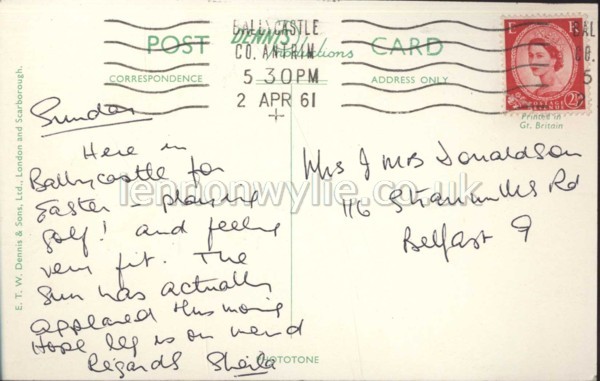 POST
DENNIS
Productions
CARD
CORRESPONDENCE
ADDRESS ONLY
BALLYCASTLE
CO. ANTRIM
5 30PM
2 APR 61
BAL
CO.
5
2
POSTAGE
2½
Printed in
Gt. Britain
E. T. W. Dennis & Sons, Ltd., London and Scarborough.
Sunday
Here in
Ballycastle for
Easter – playing
golf! and feeling
very fit. The
sun has actually
appeared this morning
Hope leg is on mend
Regards Sheila
Donaldson
116 Stranmillis Rd
Belfast 9
PHOTOTONE
lennonwylie.co.uk